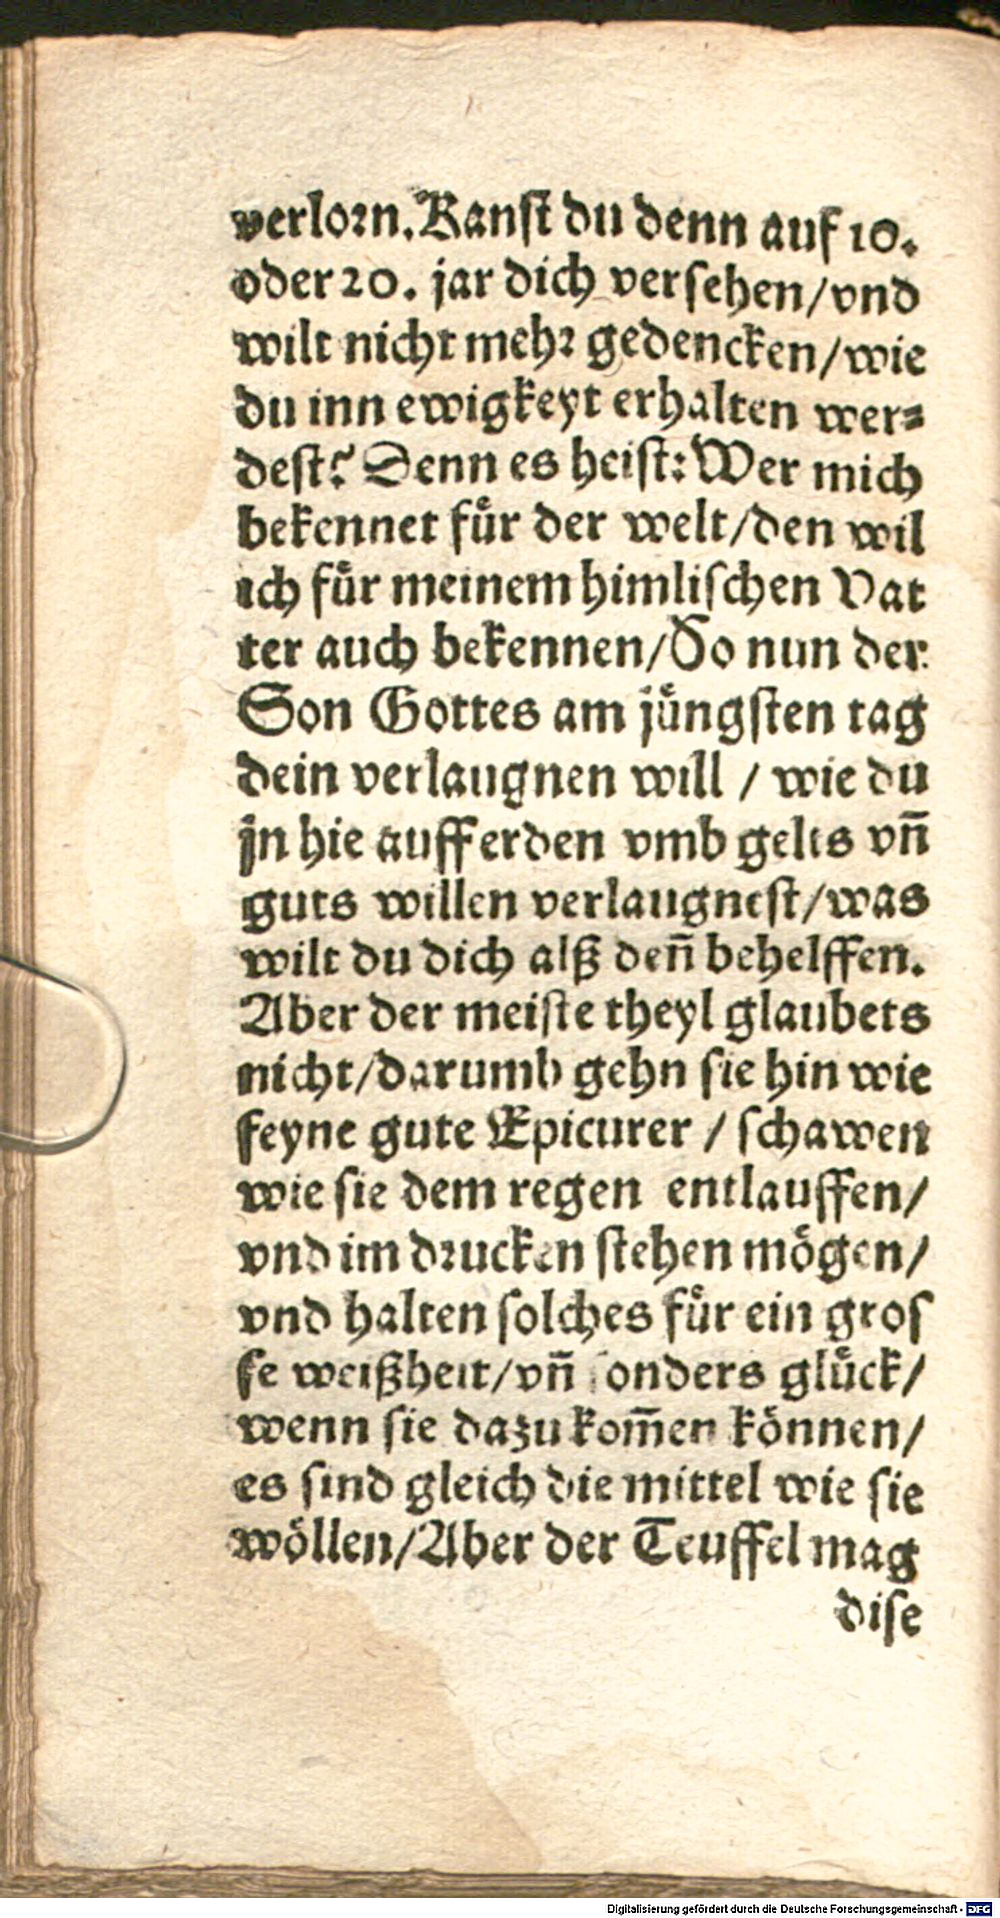 verlorn. Kanst du denn auf 10.
oder 20. jar dich versehen/vnd
wilt nicht mehr gedencken/wie
du inn ewigkeyt erhalten wer-
dest? Denn es heist: Wer mich
bekennet fuͤr der welt/den wil
ich fuͤr meinem himlischen Vat
ter auch bekennen/So nun der
Son Gottes am juͤngsten tag
dein verlaugnen will / wie du
jn hie auff erden vmb gelts vn̄
guts willen verlaugnest/was
wilt du dich alß den̄ behelffen.
Aber der meiste theyl glaubets
nicht/darumb gehn sie hin wie
feyne gute Epicurer / schawen
wie sie dem regen entlauffen/
vnd im drucken stehen moͤgen/
vnd halten solches fuͤr ein gros
se weißheit/vn̄ sonders gluͤck/
wenn sie dazu kom̄en koͤnnen/
es sind gleich die mittel wie sie
woͤllen/Aber der Teuffel mag
dise
Digitalisierung gefördert durch die Deutsche Forschungsgemeinschaft - DFG